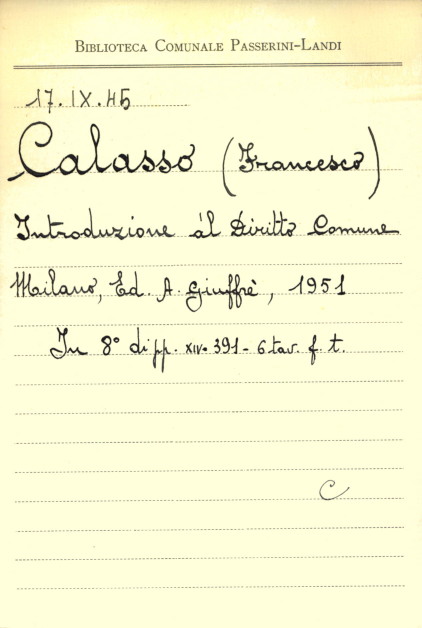 BIBLIOTECA COMUNALE PASSERINI-LANDI
17.IX.45
Calasso (Francesco)
Introduzione al Diritto Comune
Milano, Ed. A. Giuffrè, 1951
In 8° di pp. XIV-391-6 tav. f. t.
C